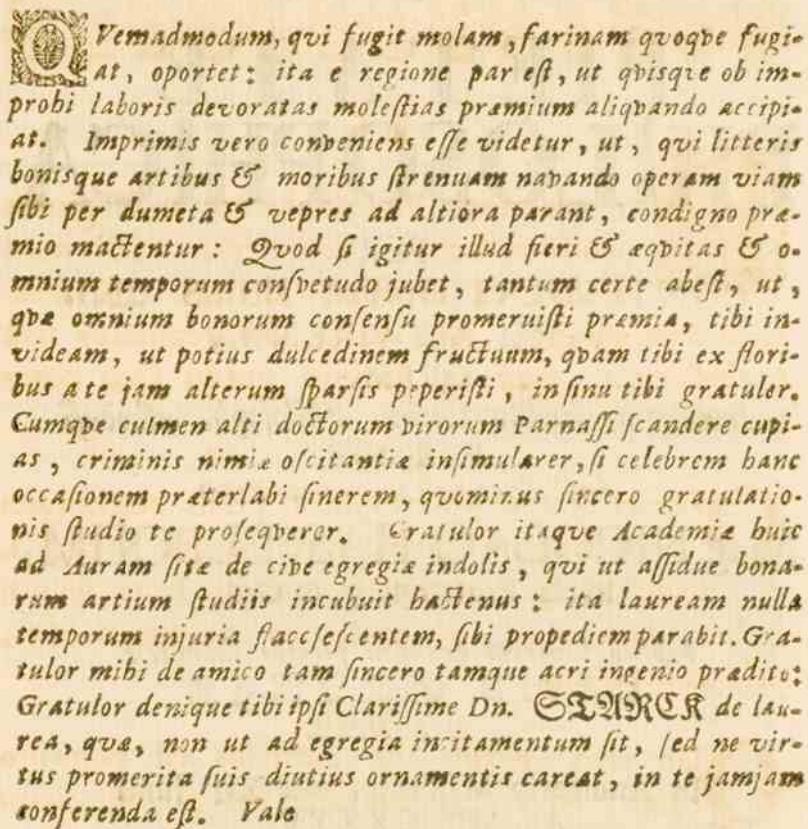 QVemadmodum, qvi fugit molam, farinam qvoqve fugi-
at, oportet: ita e regione par eſt, ut qviſqve ob im-
probi laboris devoratas moleſtias præmium aliqvando accipi-
at. Imprimis vero conveniens eſſe videtur, ut, qvi litteris
bonisque artibus & moribus ſtrenuam navando operam viam
ſibi per dumeta & vepres ad altiora parant, condigno præ-
mio mactentur: Qvod ſi igitur illud fieri & æqvitas & o-
mnium temporum conſvetudo jubet, tantum certe abeſt, ut,
qvæ omnium bonorum conſenſu promeruiſti præmia, tibi in-
videam, ut potius dulcedinem fructuum, qvam tibi ex flori-
bus a te jam alterum ſparſis peperiſti, in ſinu tibi gratuler.
Cumqve culmen alti doctorum virorum Parnaſſi ſcandere cupi-
as, criminis nimiæ oſcitantiæ inſimularer, ſi celebrem hanc
occaſionem præterlabi ſinerem, qvominus ſincero gratulatio-
nis ſtudio te proſeqverer. Gratulor itaqve Academiæ huic
ad Auram ſitæ de cive egregiæ indolis, qvi ut aſſidue bona-
rum artium ſtudiis incubuit hactenus: ita lauream nulla
temporum injuria flacceſcentem, ſibi propediem parabit. Gra-
tulor mihi de amico tam ſincero tamque acri ingenio prædito:
Gratulor denique tibi ipſi Clariſſime Dn. STARCK de lau-
rea, qvæ, non ut ad egregia incitamentum ſit, ſed ne vir-
tus promerita ſuis diutius ornamentis careat, in te jamjam
conferenda eſt. Vale